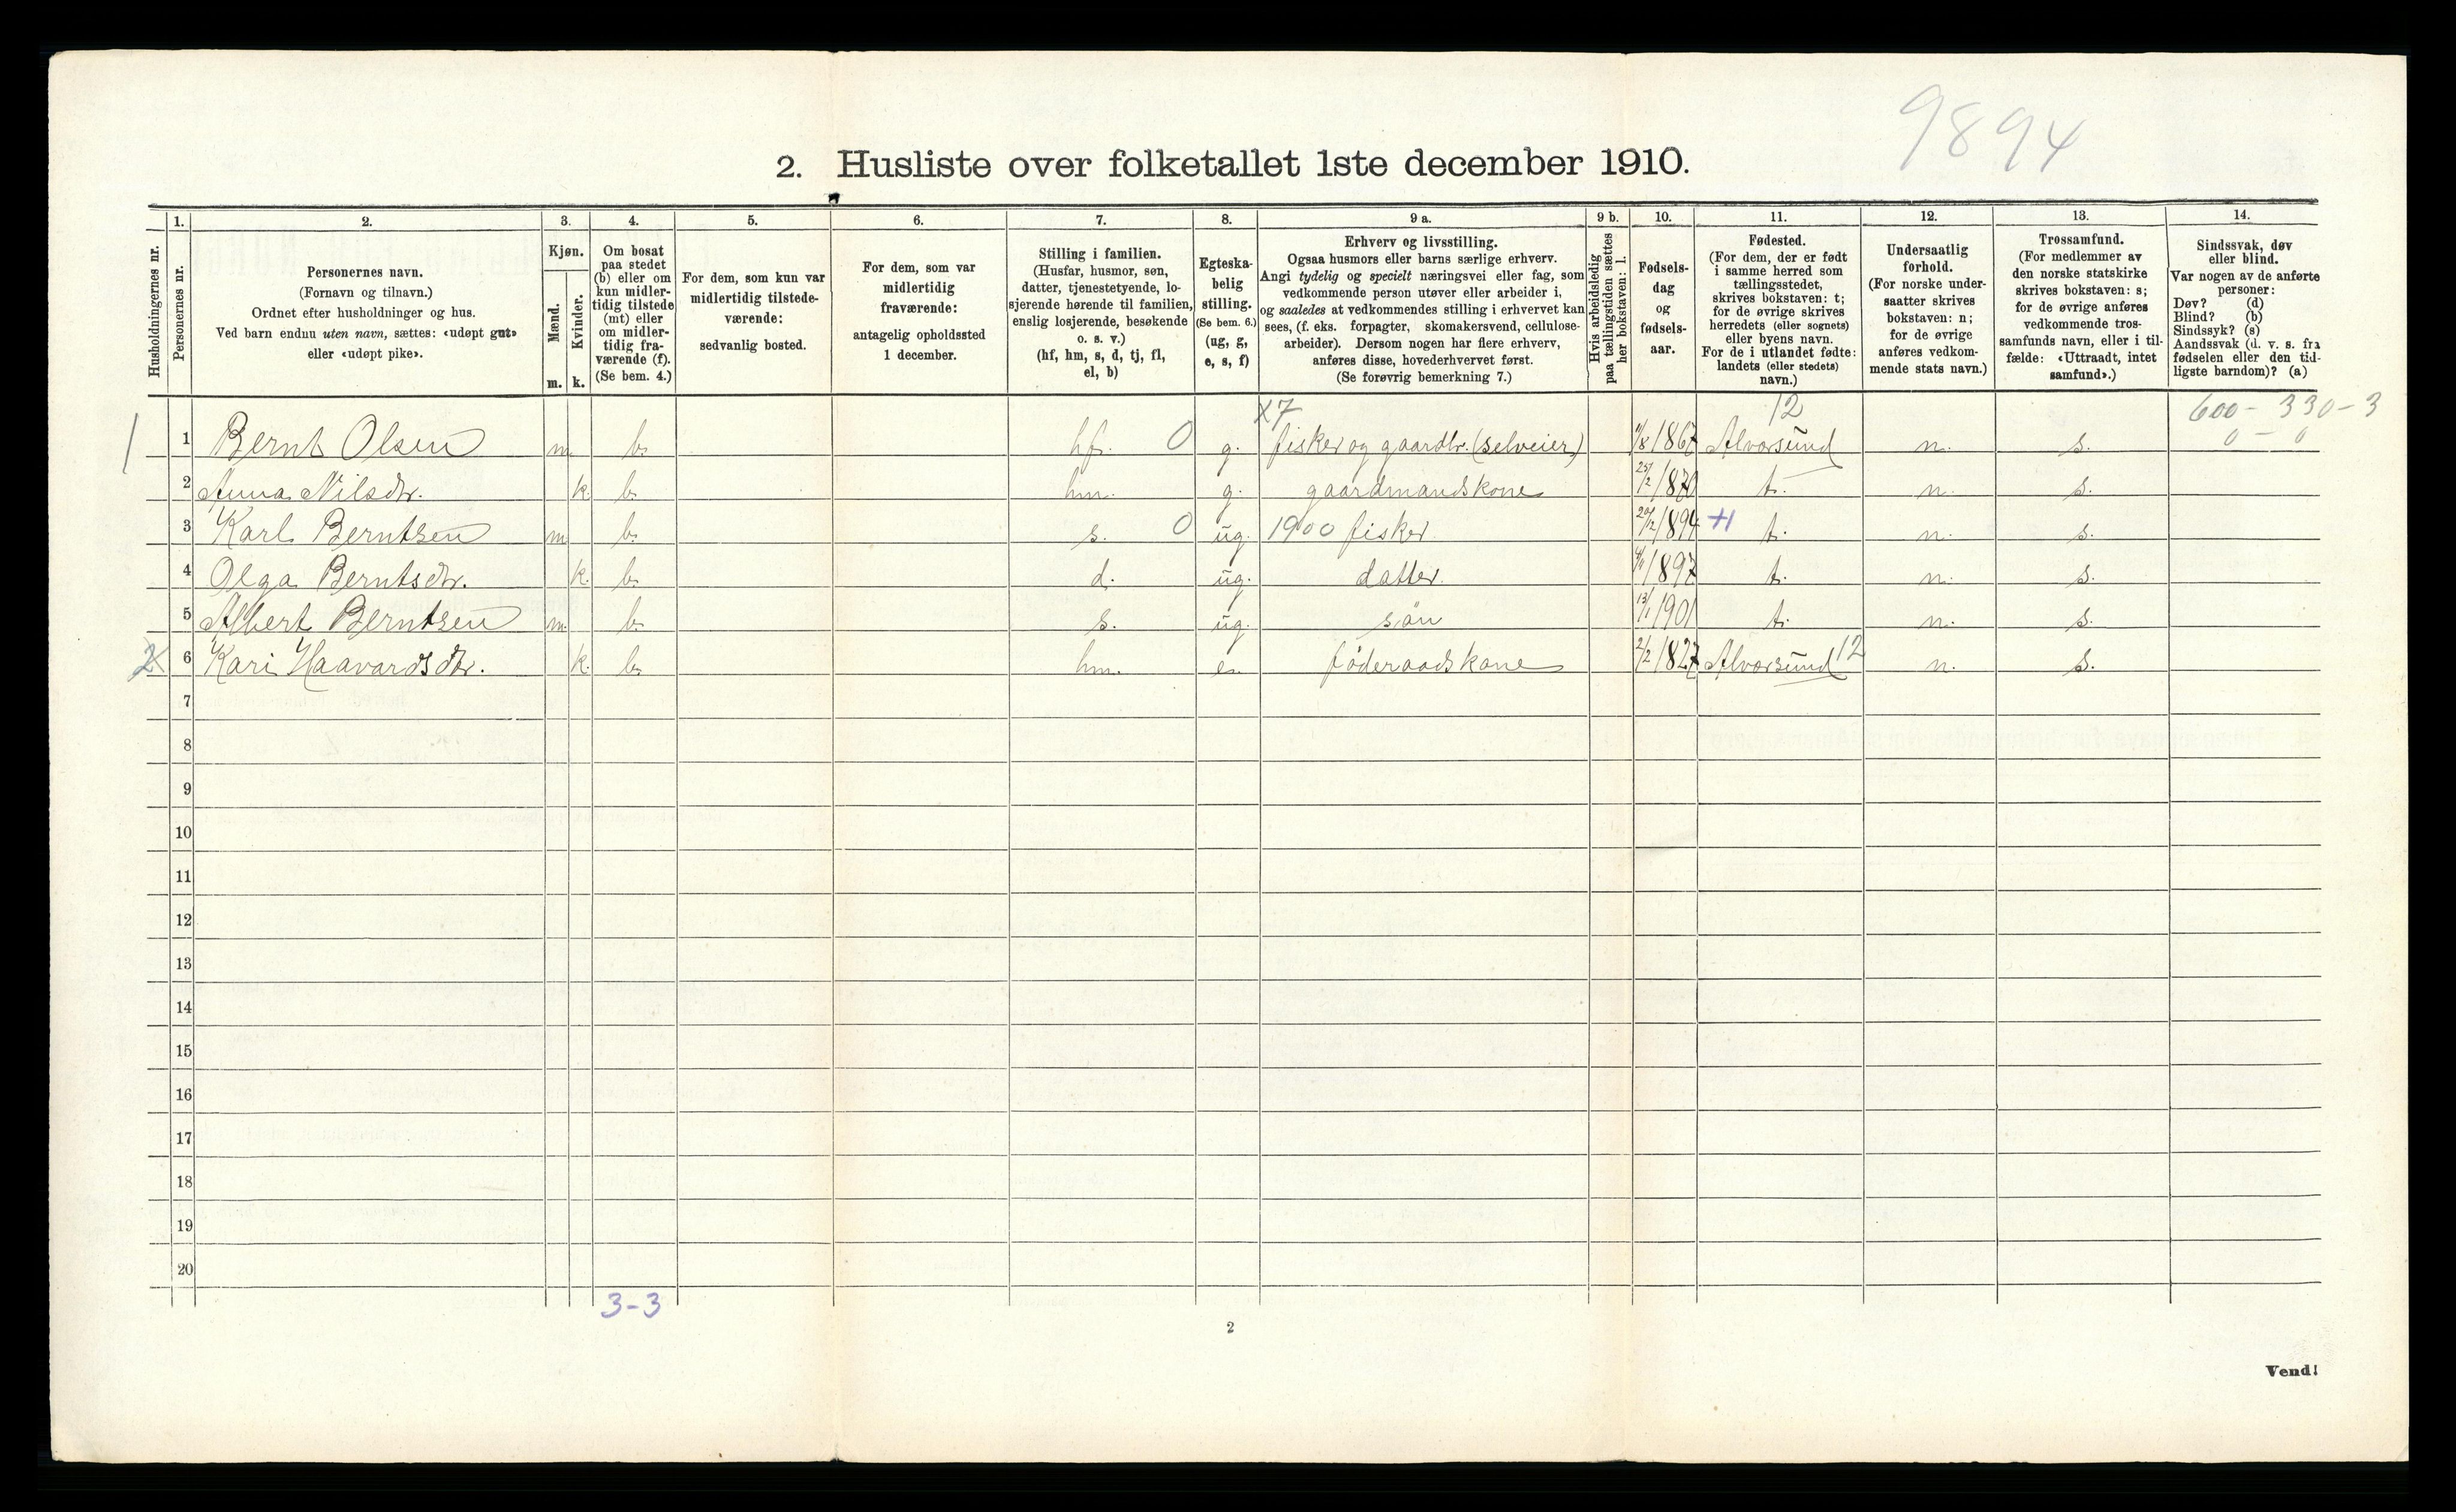 9894
2. Husliste over folketallet 1ste december 1910.
Husholdningernes nr.
1.
Personernes nr.
2.
Personernes navn.
(Fornavn og tilnavn.)
Ordnet efter husholdninger og hus.
Ved barn endnu uten navn, sættes: «udøpt gut»
eller «udøpt pike».
3.
Kjøn.
Mænd.
Kvinder.
m. k.
4.
Om bosat
paa stedet
(b) eller om
kun midler-
tidig tilstede
(mt) eller
om midler-
tidig fra-
værende (f).
(Se bem. 4.)
5.
For dem, som kun var
midlertidig tilstede-
værende:
sedvanlig bosted.
6.
For dem, som var
midlertidig
fraværende:
antagelig opholdssted
1 december.
7.
Stilling i familien.
(Husfar, husmor, søn,
datter, tjenestetyende, lo-
sjerende hørende til familien,
enslig losjerende, besøkende
o. s. v.)
(hf, hm, s, d, tj, fl,
el, b)
8.
Egteska-
belig
stilling.
(Se bem. 6.)
(ug, g,
e, s, f)
9 a.
Erhverv og livsstilling.
Ogsaa husmors eller barns særlige erhverv.
Angi tydelig og specielt næringsvei eller fag, som
vedkommende person utøver eller arbeider i,
og saaledes at vedkommendes stilling i erhvervet kan
sees, (f. eks. forpagter, skomakersvend, cellulose-
arbeider). Dersom nogen har flere erhverv,
anføres disse, hovederhvervet først.
(Se forøvrig bemerkning 7.)
9 b.
Hvis arbeidsledig
paa tællingstiden sættes
her bokstaven: l.
10.
Fødsels-
dag
og
fødsels-
aar.
11.
Fødested.
(For dem, der er født
i samme herred som
tællingsstedet,
skrives bokstaven: t;
for de øvrige skrives
herredets (eller sognets)
eller byens navn.
For de i utlandet fødte:
landets (eller stedets)
navn.)
12.
Undersaatlig
forhold.
(For norske under-
saatter skrives
bokstaven: n;
for de øvrige
anføres vedkom-
mende stats navn.)
13.
Trossamfund.
(For medlemmer av
den norske statskirke
skrives bokstaven: s;
for de øvrige anføres
vedkommende tros-
samfunds navn, eller i til-
fælde: «Uttraadt, intet
samfund».)
14.
Sindssvak, døv
eller blind.
Var nogen av de anførte
personer:
Døv? (d)
Blind? (b)
Sindssyk? (s)
Aandssvak (d. v. s. fra
fødselen eller den tid-
ligste barndom)? (a)
x7 12 600 - 330 - 3
1 1 Bernt Olsen m. b. hf. 0 g. fisker og gaardbr. (selveier) 1867 Alversund n. s. 0 - 0
2 Anna Nilsdtr. k. b. hm. g. gaardmandskone 25/2 1870 t. n. s.
3 Karl Berntsen m. b. s. 0 ug. 1900 fisker 1894 t. n. s.
4 Olga Berntsdtr. k. b. d. ug. datter 1897 t. n. s.
5 Albert Berntsen m. b. s. ug. sön 13/1 1901 t. n. s.
2 6 Kari Haavardsdtr. k. b. hm. e. föderaadskone 2/2 1827 Alversund 12 n. s.
7
8
9
10
11
12
13
14
15
16
17
18
19
20
3-3
2
Vend!